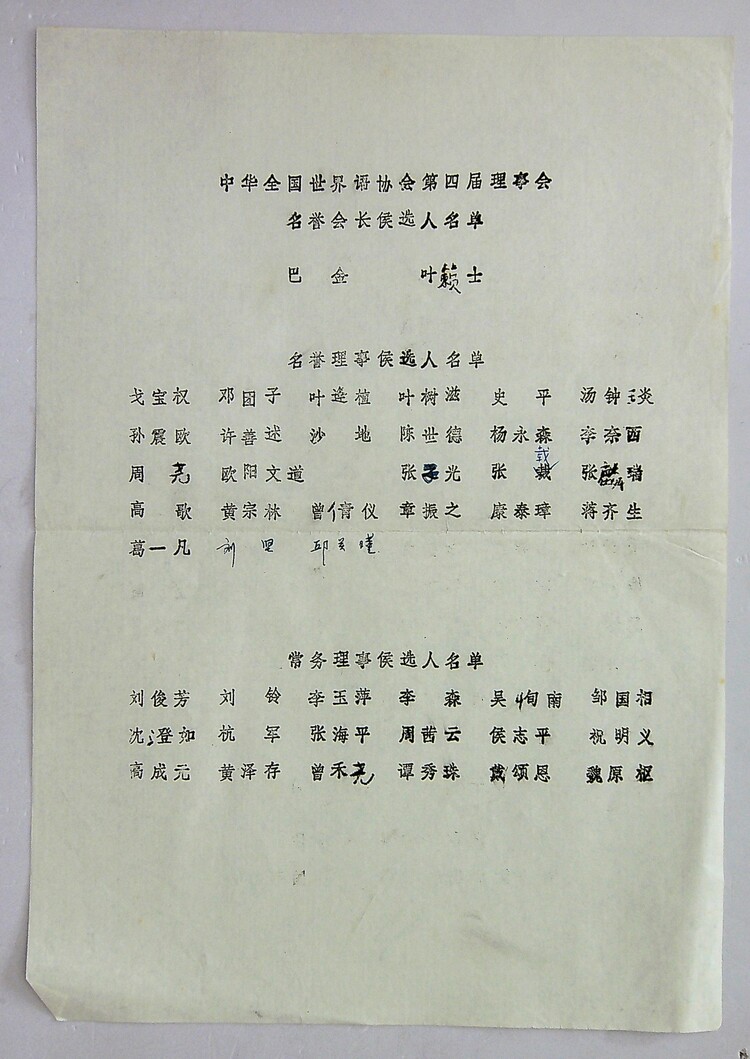 中华全国世界语协会第四届理事会
名誉会长侯选人名单
巴金 叶籁士
名誉理事侯选人名单
戈宝权 邓团子 叶逢植 叶树滋 史平 汤钟琰
孙震欧 许善述 沙地 陈世德 杨永森 李奈西
载
周尧 欧阳文道 张光 张 张瑞
高歌 黄宗林 曾倩仪 章振之 康泰璋 蒋齐生
葛一凡 邱
常务理事侯选人名单
刘俊芳 刘铃 李玉萍 李森 吴恂南 邹国相
沈澄如 杭军 张海平 周茜云 侯志平 祝明义
高成元 黄泽存 曾禾尧 谭秀珠 戴颂恩 魏原枢